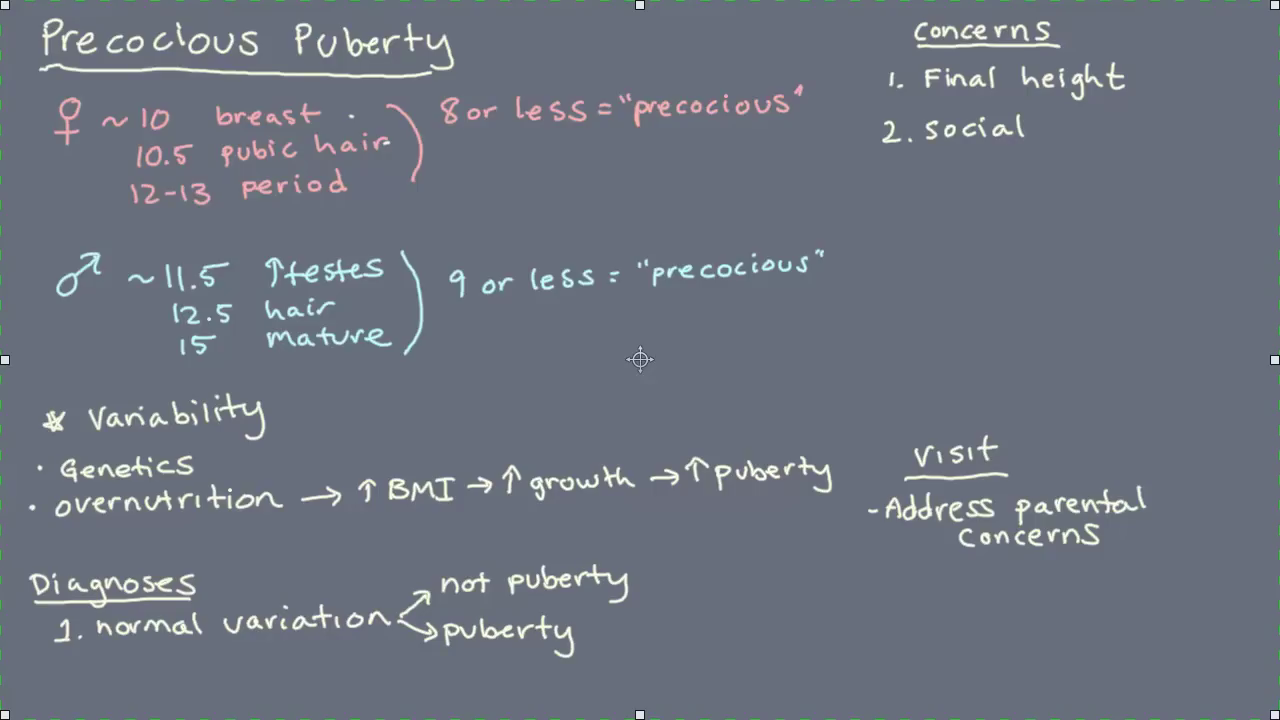 Precocious Puberty
♀ ~ 10 breast
10.5 pubic hair
12-13 period
8 or less = "precocious"
♂ ~ 11.5 ↑testes
12.5 hair
15 mature
9 or less = "precocious"
* Variability
· Genetics
· overnutrition → ↑ BMI → ↑ growth → ↑ puberty
Diagnoses
1. normal variation
not puberty
puberty
Concerns
1. Final height
2. social
Visit
- Address parental
concerns